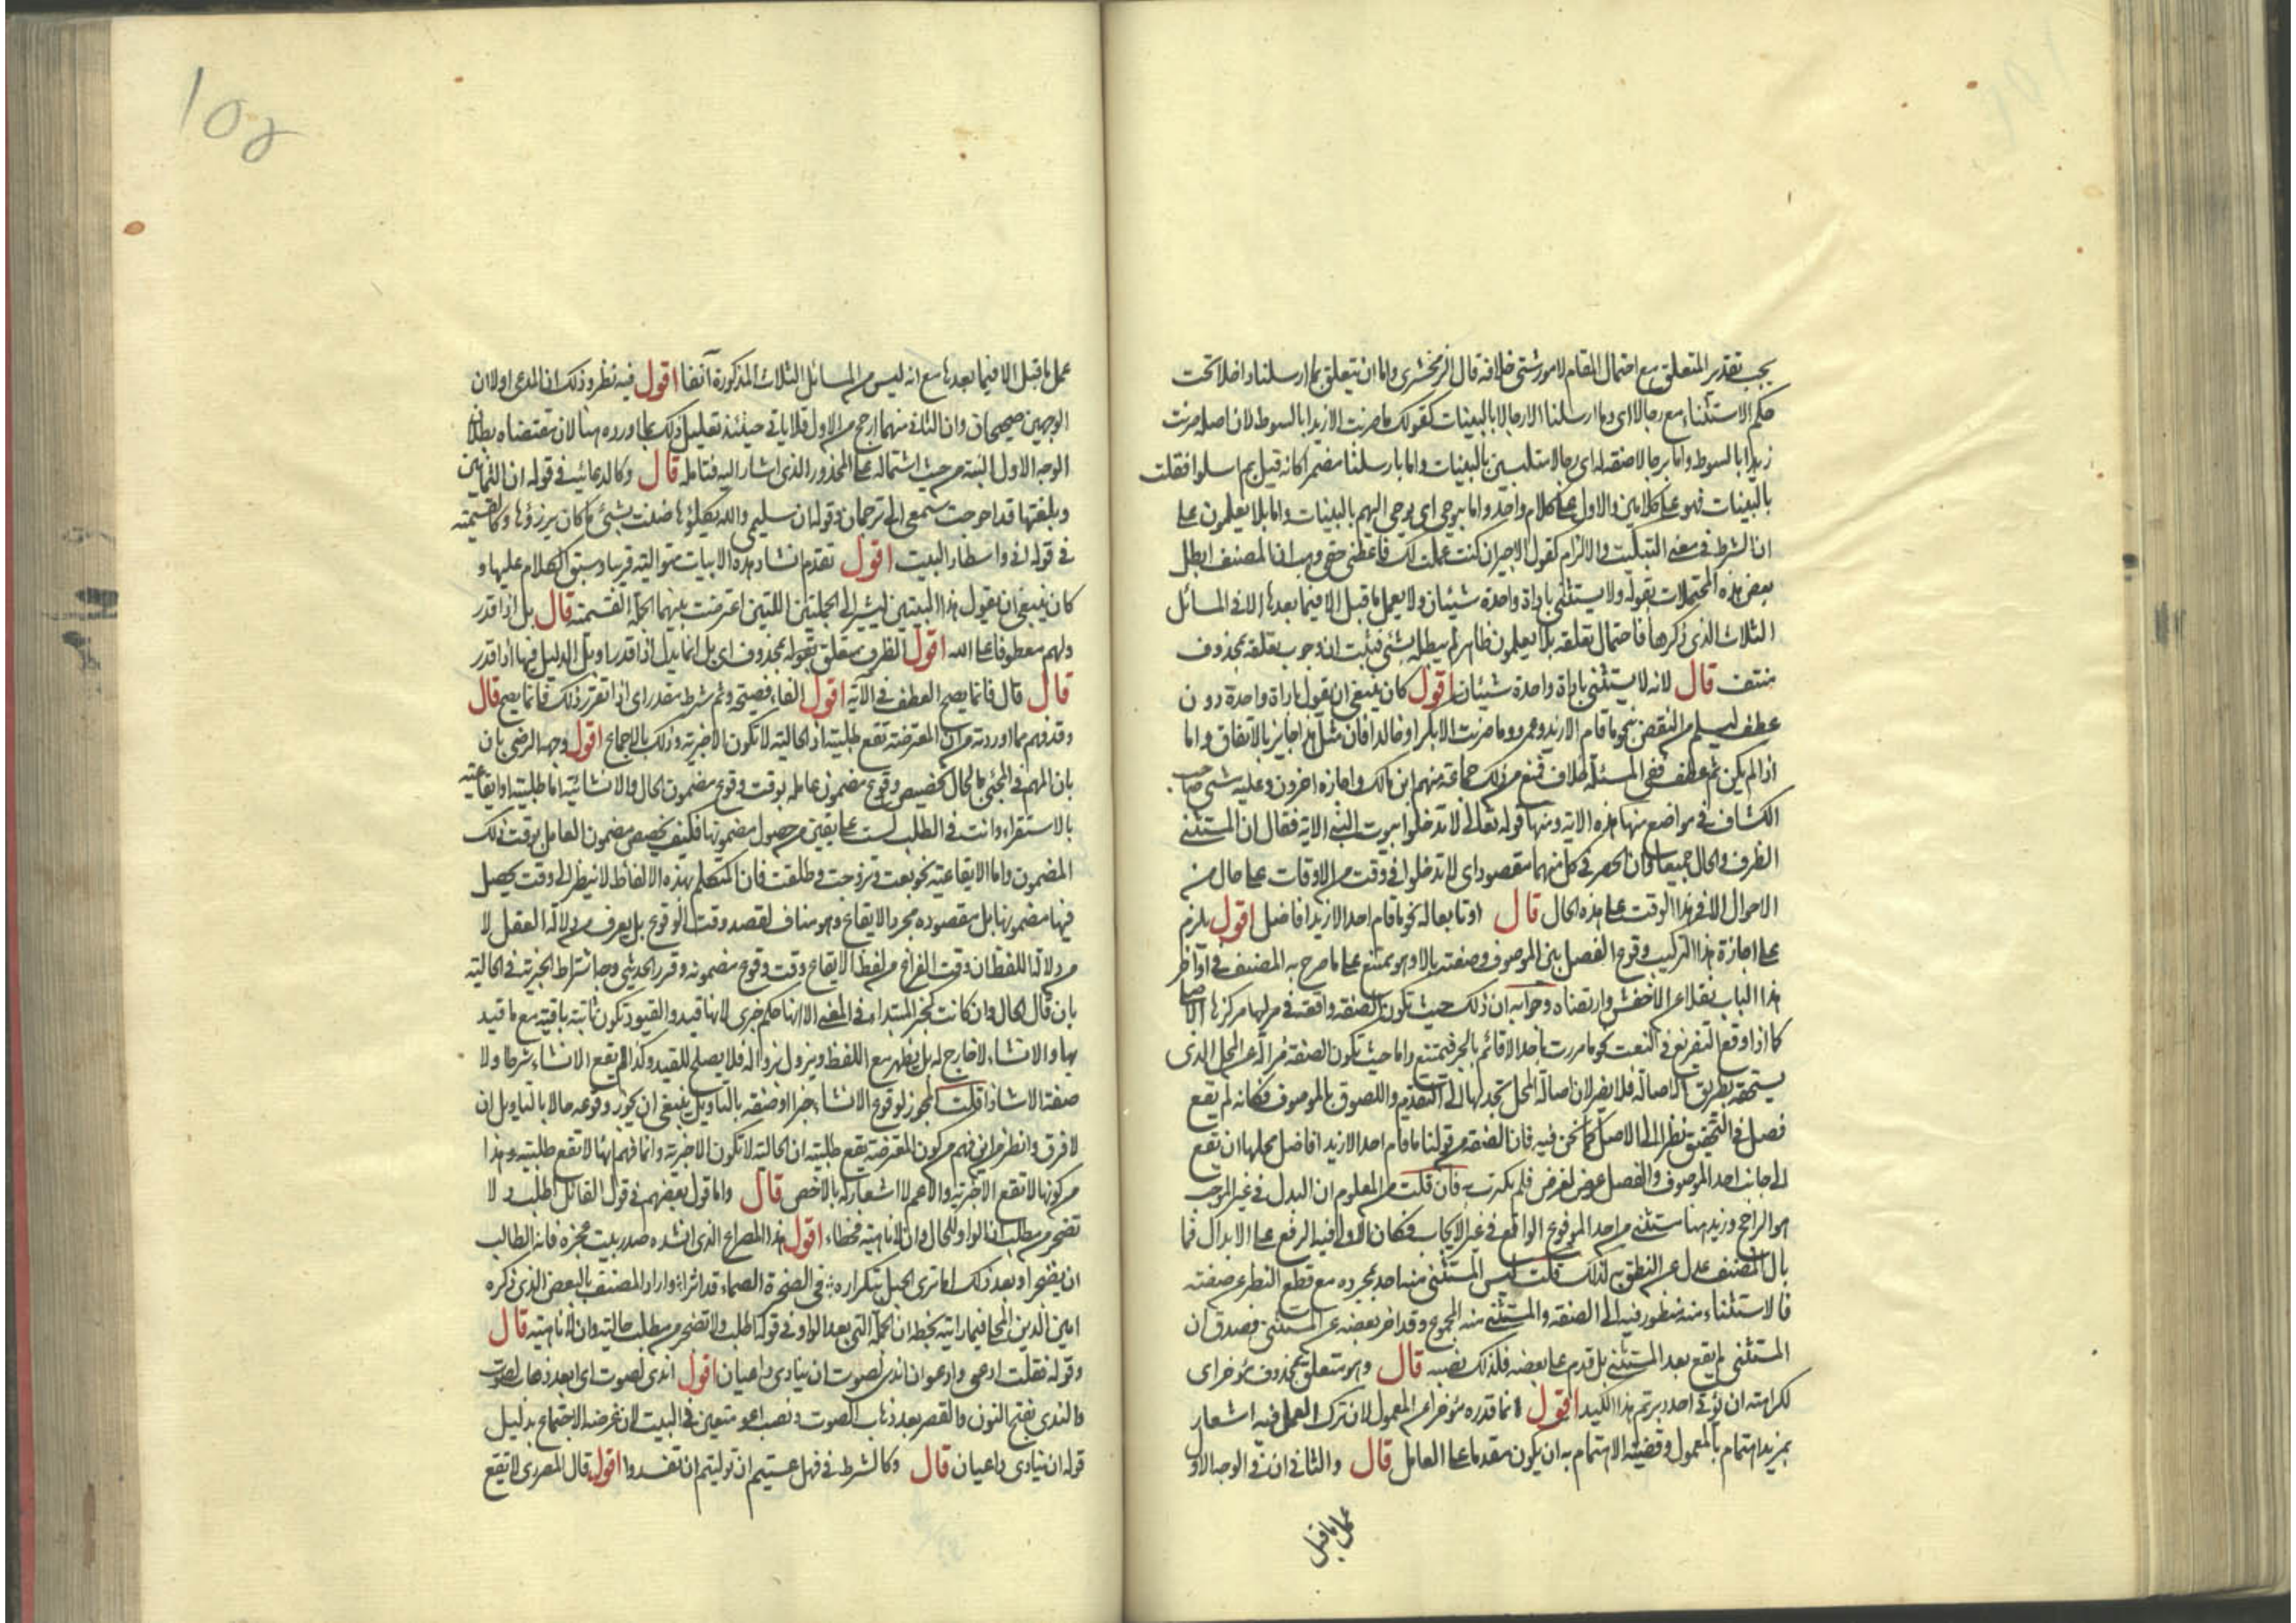 يجب تقدير المتعلق مع احتمال المقام لامور شتى خلافه قال الزمخشرى واما ان يتعلق بما ارسلنا داخلا تحت
حكم الاستثناء مع رجالا اى وما ارسلنا الا رجالا بالبينات كقولك ما ضربت الا زيدا بالسوط لان اصله ضربت
زيدا بالسوط واما برجالا صفة له اى رجالا متلبسين بالبينات واما بارسلنا مضمرا كانه قيل بم ارسلوا فقلت
بالبينات فهو على كلامين والاول على كلام واحد واما بيوحى اى يوحى اليهم بالبينات واما بلا يعلمون على
ان الشرط فى معنى التبكيت والالزام كقول الاجير ان كنت عملت لك فاعطنى حقى وهب ان المصنف ابطل
بعض هذه المحتملات بقوله ولا يستثنى باداة واحدة شيئان ولا يعمل ما قبل الا فيما بعدها الا فى المسائل
الثلاث الذى ذكرها فاحتمال تعلقه بلا يعلمون ظاهر لم يبطله بشئ فثبت ان وجوب تعلقه بمحذوف
منتف قال لانه لا يستثنى باداة واحدة شيئان اقول كان ينبغى ان يقول باداة واحدة دون
عطف ليسلم من النقض بنحو ما قام الا زيد وعمرو وما ضربت الا بكرا وخالدا فان مثل هذا جايز بالاتفاق واما
اذا لم يكن ثم عطف ففى المسئلة خلاف فمنع من ذلك جماعة منهم ابن مالك واجازه اخرون وعليه مشى صاحب
الكشاف فى مواضع منها هذه الاية ومنها قوله تعالى لا تدخلوا بيوت النبى الاية فقال ان المستثنى
الظرف والحال جميعا وان الحصر فى كل منهما مقصود اى لا تدخلوا فى وقت من الاوقات على حال من
الاحوال الا فى هذا الوقت على هذه الحال قال او تابعا له نحو ما قام احد الا زيدا فاضل اقول يلزم
على اجازة هذا التركيب وقوع الفصل بين الموصوف وصفته بالا وهو ممتنع على ما صرح به المصنف فى اواخر
هذا الباب نقلا عن الاخفش وارتضاه وجوابه ان ذلك حيث تكون الصفة واقعة فى مركزها الاصلى
كما اذا وقع التفريغ فى النعت نحو ما مررت باحد الا قائم بالجر فيمتنع واما حيث تكون الصفة مزالة عن المحل الذى
يستحقه بطريق الاصالة فلا يضر لان اصالة المحل تجد لها الى التقديم واللصوق بالموصوف فكانه لم يقع
فصل فى التحقيق نظرا الى الاصل كما نحن فيه فان الصفة من قولنا ما قام احد الا زيدا فاضل محلها ان تقع
الى جانب احد الموصوف والفصل عرض لغرض فلم يكترث به فان قلت من المعلوم ان البدل فى غير الموجب
هو الراجح وزيد هنا مستثنى من احد المرفوع الواقع فى غير الايجاب فكان الاولى فيه الرفع على الابدال فما
بال المصنف عدل عن النطق به كذلك قلت ليس المستثنى منه احد بمجرده مع قطع النظر عن صفته
فالاستثناء منه منظور فيه الى الصفة والمستثنى منه المجموع وقد اخر بعضه عن المستثنى فصدق ان
المستثنى لم يقع بعد المستثنى بل قدم على بعضه فلذلك نصبه قال وهو متعلق بمحذوف مؤخر اى
لكراهته ان يؤتى احد دبرتم هذا الكيد اقول انما قدره مؤخرا عن المعمول لان ترك العمل فيه اشعار
بمزيد اهتمام بالمعمول وقضية الاهتمام به ان يكون مقدما على العامل قال والثانى ان فى الوجه الاول
عمل ما قبل
عمل ما قبل الا فيما بعدها مع انه ليس من المسائل الثلاث المذكورة آنفا اقول فيه نظر وذلك ان المدعى اولا ان
الوجهين صحيحان وان الثانى منهما ارجح من الاول فلا ياتى حينئذ تعليل ذلك بما اورده هنا لان مقتضاه بطلان
الوجه الاول البتة من حيث اشتماله على المحذور الذى اشار اليه فتامله قال وكالدعائية فى قوله ان الثمانين
وبلغتها قد احوجت سمعى الى ترجمان وقوله ان سليمى والله يكلؤها ضنت بشئ ما كان يرزؤها وكالقسمية
فى قوله انى واسطار البيت اقول تقدم انشاد هذه الابيات متوالية قريبا وسبق الكلام عليها و
كان ينبغى ان يقول هذا البيتين ليشير الى الجملتين اللتين اعترضت بينهما الجملة القسمية قال بل اذا قدر
ولهم معطوفا على الله اقول الظرف متعلق بقوله بمحذوف اى بل انما يدل اذا قدر او بل الدليل فيها اذا قدر
قال قال فانما يصح العطف فى الآية اقول الفاء فصيحة وثم شرط مقدر اى اذا تقرر ذلك فانما يصح قال
وقد فهم مما اوردته من ان المعترضة تقع طلبية ان الحالية لا تكون الا خبرية وذلك بالاجماع اقول وجهه الرضى بان
بان المهم فى المجئ بالحال تخصيص وقوع مضمون عامله بوقت وقوع مضمون الحال والانشائية اما طلبية او ايقاعية
بالاستقراء وانت فى الطلب لست على يقين من حصول مضمونها فكيف تخصص مضمون العامل بوقت ذلك
المضمون واما الايقاعية نحو بعت وتزوجت وطلقت فان المتكلم بهذه الالفاظ لا ينظر الى وقت يحصل
فيها مضمونها بل مقصوده مجرد الايقاع وهو مناف لقصد وقت الوقوع بل يعرف من دلالة العقل لا
من دلالة اللفظ ان وقت الفراغ من لفظ الايقاع وقت وقوع مضمونه وقرر الحديثى وجه اشتراط الخبرية فى الحالية
بان قال الحال وان كانت كخبر المبتدا فى المعنى الا انها حكم خبرى لانها قيد والقيود تكون ثابتة باقية مع ما قيد
بها والانشاء لا خارج له بل يظهر مع اللفظ ويزول بزواله فلا يصلح للقيد ولذا لم يقع الانشاء شرطا ولا
صفة الا شاذا قلت المجوز لوقوع الانشاء خبرا او صفة بالتاويل ينبغى ان يجوز وقوعه حالا بالتاويل اذ
لا فرق وانظر من اين فهم من كون المعترضة تقع طلبية ان الحالية لا تكون الا خبرية وانما فهم انها لا تقع طلبية وهذا
من كونها لا تقع الا خبرية والاعم لا اشعار له بالاخص قال واما قول بعضهم فى قول القائل اطلب ولا
تضجر من مطلب ان الواو للحال وان لا ناهية فخطاء اقول هذا المصراع الذى انشده صدر بيت عجزه فآفة الطالب
ان يضجرا وبعد ذلك اما ترى الحبل بتكراره فى الصخرة الصماء قد اثرا واراد المصنف بالبعض الذى ذكره
امين الدين المحلى فيما رايته بخطه ان الجملة التى بعد الواو فى قوله اطلب ولا تضجر من مطلب حالية وان لا ناهية قال
وقوله فقلت ادعى وادعو ان اندى لصوت ان ينادى داعيان اقول اندى لصوت اى ابعد ذهاب لصوت
والندى بفتح النون والقصر بعد ذهاب الصوت ونصب ادعو متعين فى البيت لان غرضه الاجتماع بدليل
قوله ان ينادى داعيان قال وكالشرط فى فهل عسيتم ان توليتم ان تفسدوا اقول قال المعرى لا تقع